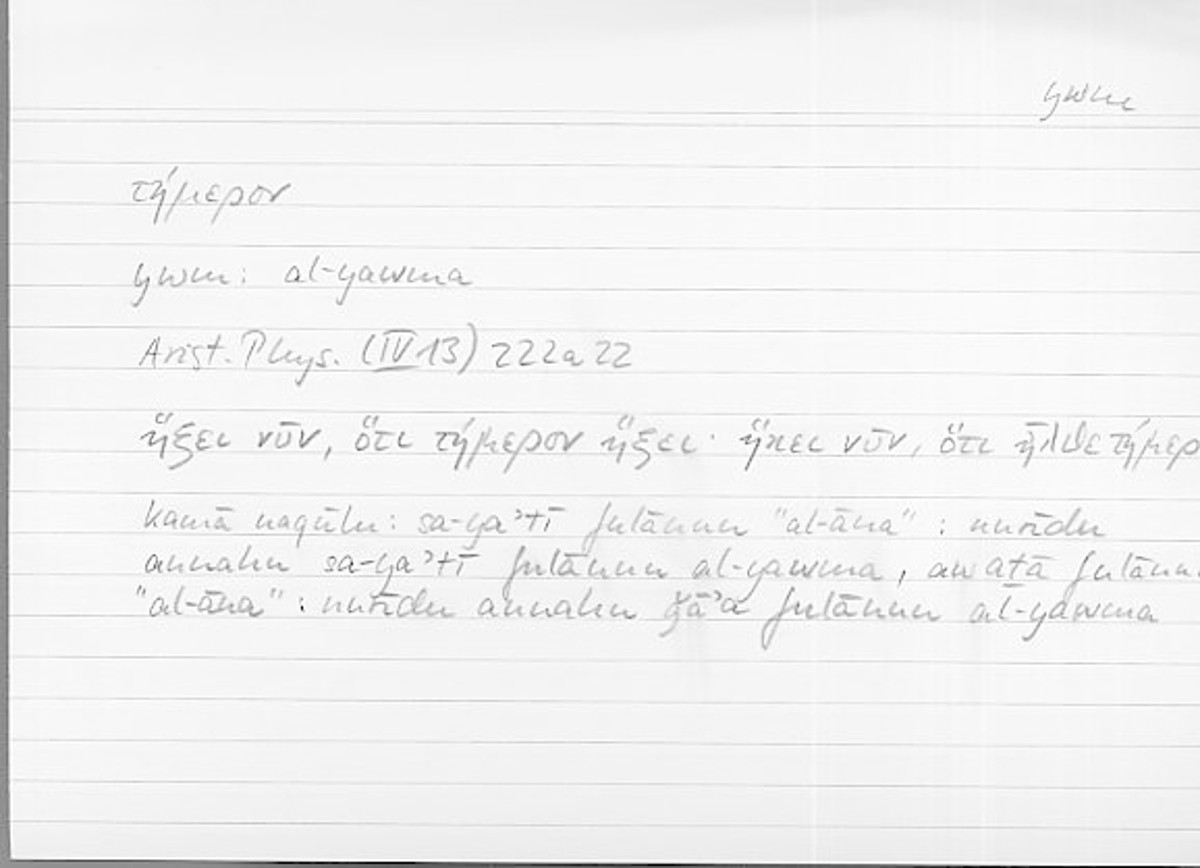 ywm
τήμερον
ywm: al-yawma
Arist. Phys. (IV 13) 222a 22
ἥξει νῦν, ὅτι τήμερον ἥξει· ἥκει νῦν, ὅτι ἦλθε τήμερ
kamā naqūlu: sa-ya'tī fulānun "al-āna" : nurīdu
annahu sa-ya'tī fulānun al-yawma, aw atā fulānun
"al-āna" : nurīdu annahu ǧā'a fulānun al-yawma